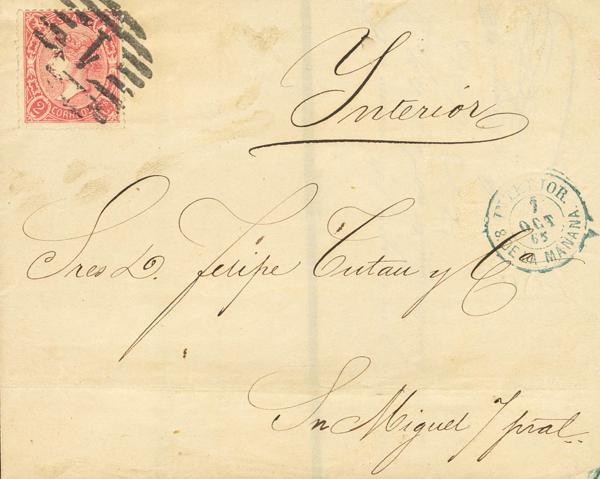 Interior
INTERIOR.
7
OCT
65
8 DE LA MAÑANA.
Sres D. Felipe Tutau y Cª
Sn Miguel 7 pral.
2 CORREOS
1